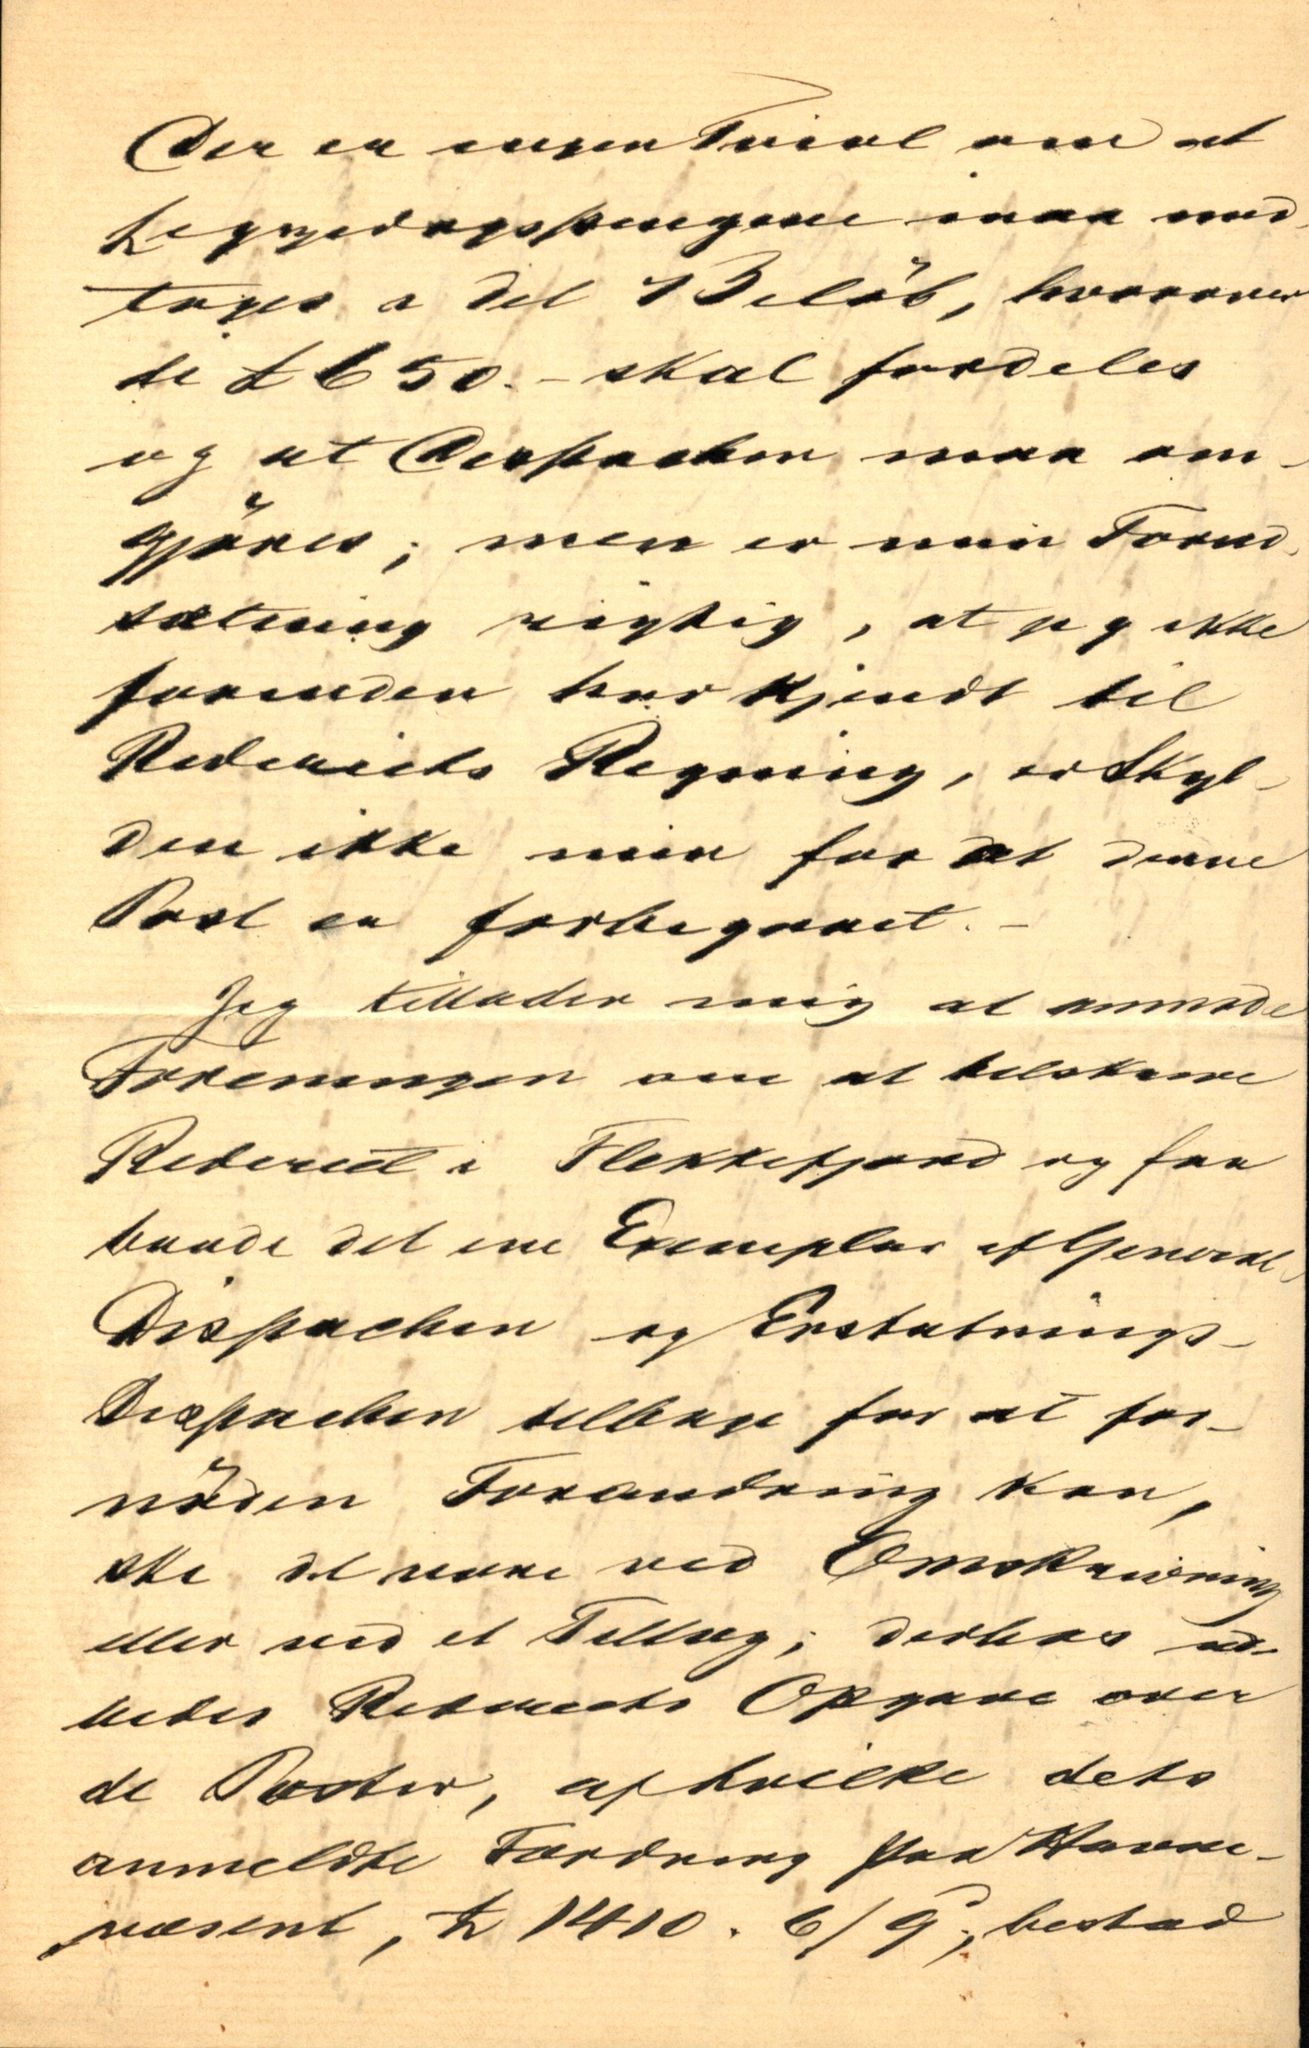 Der er ingen Tvivl om at
Liggedagspengene maa med
tages i det Belöb, hvorover
de £ 650.- skal fordeles
og at Dispachen maa om-
gjöres; men er min Forud
sætning rigtig, at jeg ikke
forinden har kjendt til
Rederiets Regning, er Skyl-
den ikke min for at denne
Post er forbegaaet.-
Jeg tillader mig at anmode
Foreningen om at tilskrive
Rederiet i Flekkefjord og faa
baade det ene Exemplar af General
Dispachen og Erstatnings-
Dispachen tilbage for at for-
nöden Forandring kan
ske det være ved Omskrivning
eller ved et Tillæg; derhos ud-
bedes Rederiets Opgave over
de Poster, af hvilke dets
anmeldte Fordring paa Havne-
væsent, £ 1410. 6/9, bestod